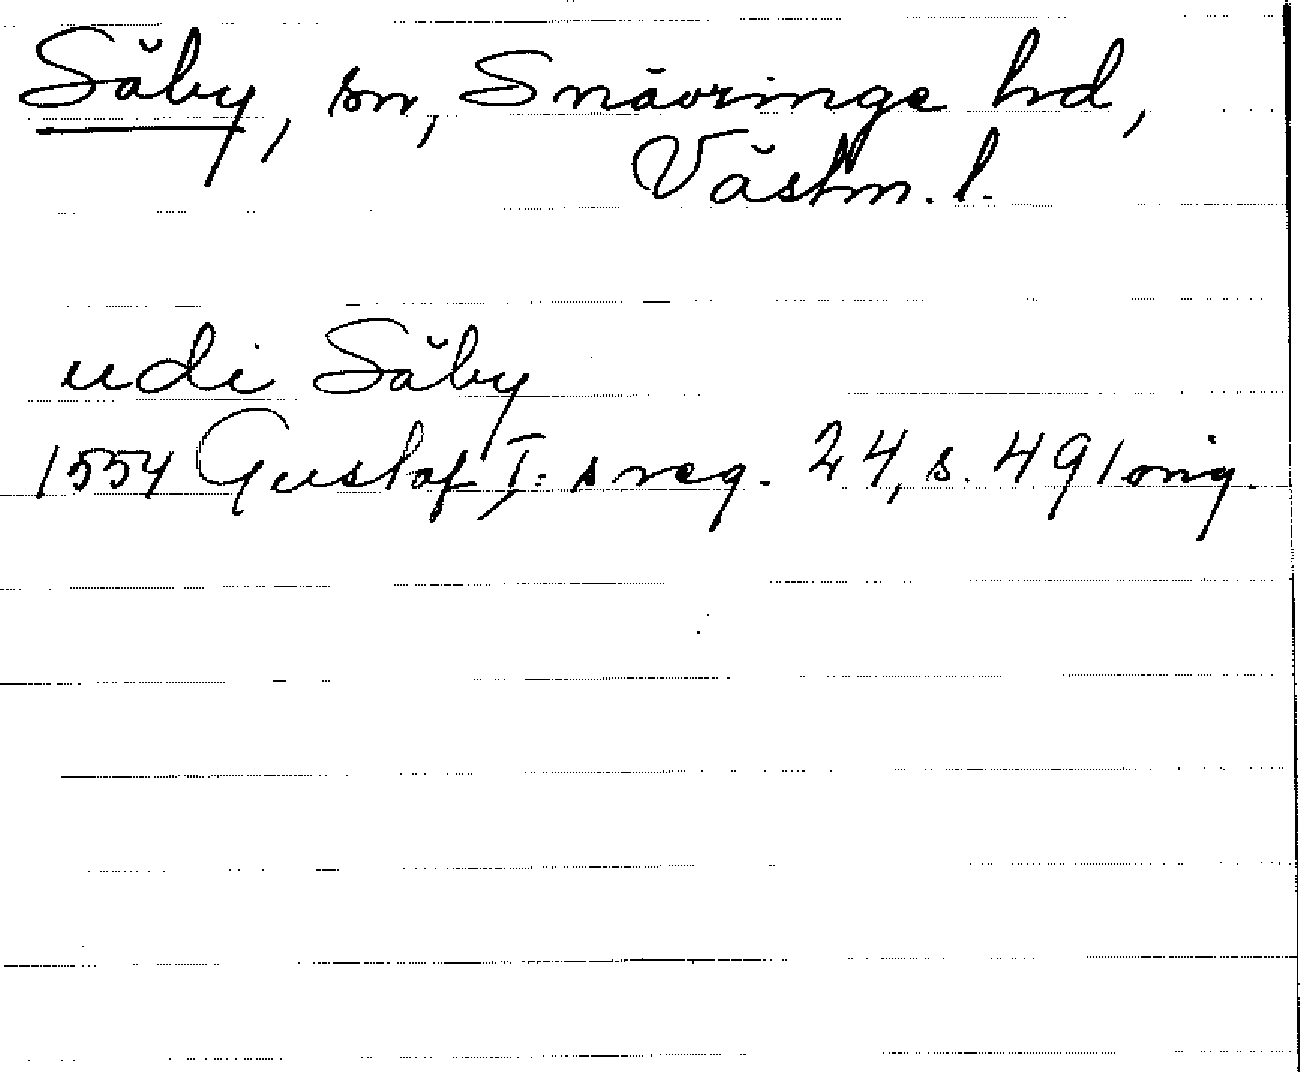 Säby, sn, Snävringe hd,
Västm. l.
udi Säby
1554 Gustaf I:s reg. 24, s. 491 orig.